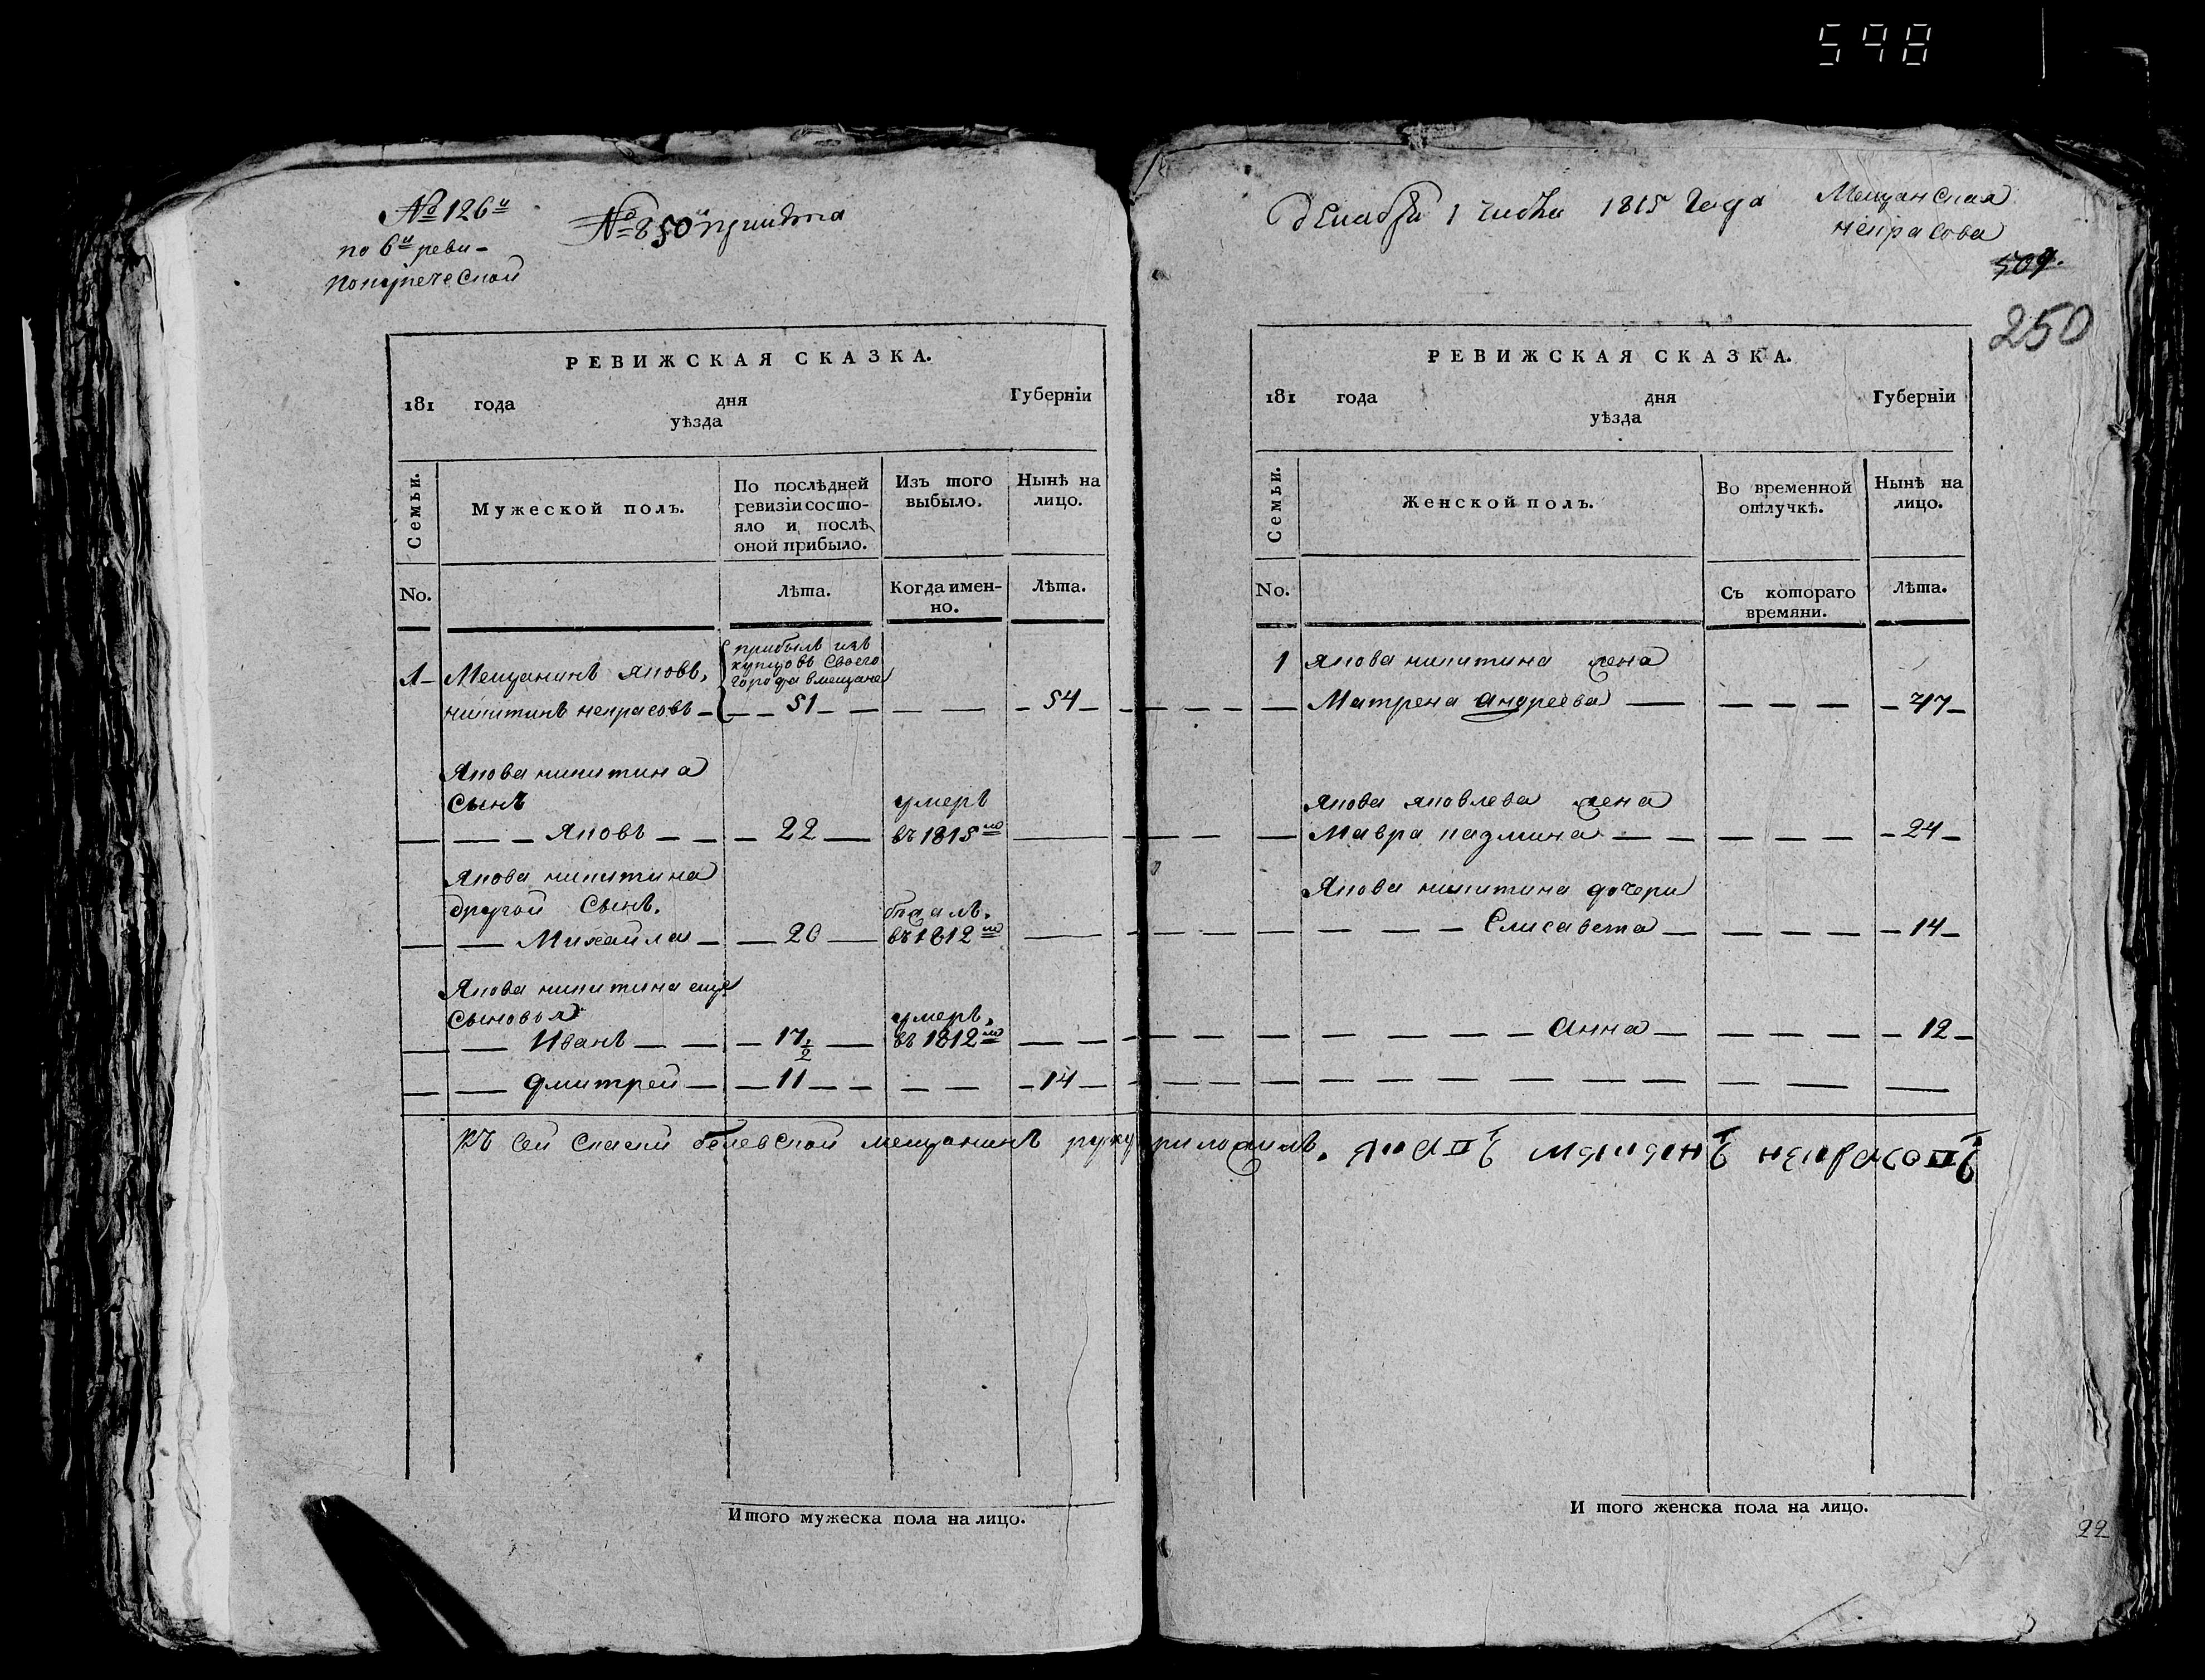 598
№ 126й
по 6й реви-
купеческой
№ 850й принята
РЕВИЖСКАЯ СКАЗКА.
181 года дня Губерніи
уѣзда
Семьи.
Мужеской полъ.
По послѣдней
ревизіи состо-
яло и послѣ
оной прибыло.
Изъ того
выбыло.
Нынѣ на
лицо.
No.
Лѣта.
Когда имен-
но.
Лѣта.
прибылъ изъ
купцовъ своего
города вмещане
1 Мещанинъ яковъ,
никитинъ некрасовъ 51 54
Якова никитина
сынъ умеръ
Яковъ 22 въ 1815мъ
Якова никитина
другой сынъ.
Михайла 20 въ 1812мъ
Якова никитина еще
сыновья умеръ,
Иванъ 17 1/2 въ 1812мъ
Дмитрей 11 14
Къ сей скаски белевской мещанинъ
Итого мужеска пола на лицо.
декабря 1 числа 1815 Года
Мещанская
некрасова
509.
250
РЕВИЖСКАЯ СКАЗКА.
181 года дня Губерніи
уѣзда
Семьи.
Женской полъ.
Во временной
отлучкѣ.
Нынѣ на
лицо.
No.
Съ котораго
времяни.
Лѣта.
1 якова никитина жена
Матрена андреева 47
якова яковлева жена
Мавра 24
Якова никитина дочери
Елисавета 14
анна 12
И того женска пола на лицо.
22